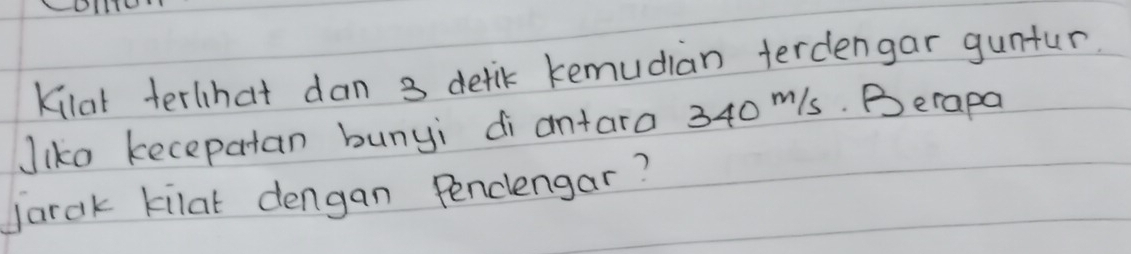 Kilat terlihat dan 3 detik kemudian terdengar guntur.
Jika kecepatan bunyi di antara 340 m/s. Berapa
jarak kilat dengan Pendengar?